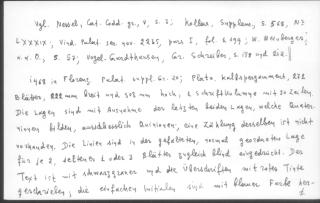 Vgl. Nessel, Cat. Codd. gr., V, S. 2; Kollar, Supplem., S. 568, Nr.
LXXXIX; Vind. Palat. ser. nov. 2265, pars I, fol. 199; W. Weinberger,
a.a.O., S. 57; Vogel-Gardthausen, Gr. Schreiber, S. 178 und
1468 in Florenz. Palat. suppl. Gr. 20; Plato. Kalbspergament,
Blätter, 222 mm breit und 328 mm hoch, 1 Schriftkolumne mit 30 Zeilen.
Die Lagen sind mit Ausnahme der letzten beiden Lagen, welche Quater-
nionen bilden, ausschliesslich Quinionen, eine Zählung derselben ist nicht
vorhanden. Die Linien sind in der gefalteten, normal geordneten Lage
für je 2, seltener 1 oder 3 Blätter zugleich blind eingedrückt. Der
Text ist mit schwarzgrauer und die Überschriften mit roter Tinte
geschrieben; die einfachen Initialen sind mit blauer Farbe her-